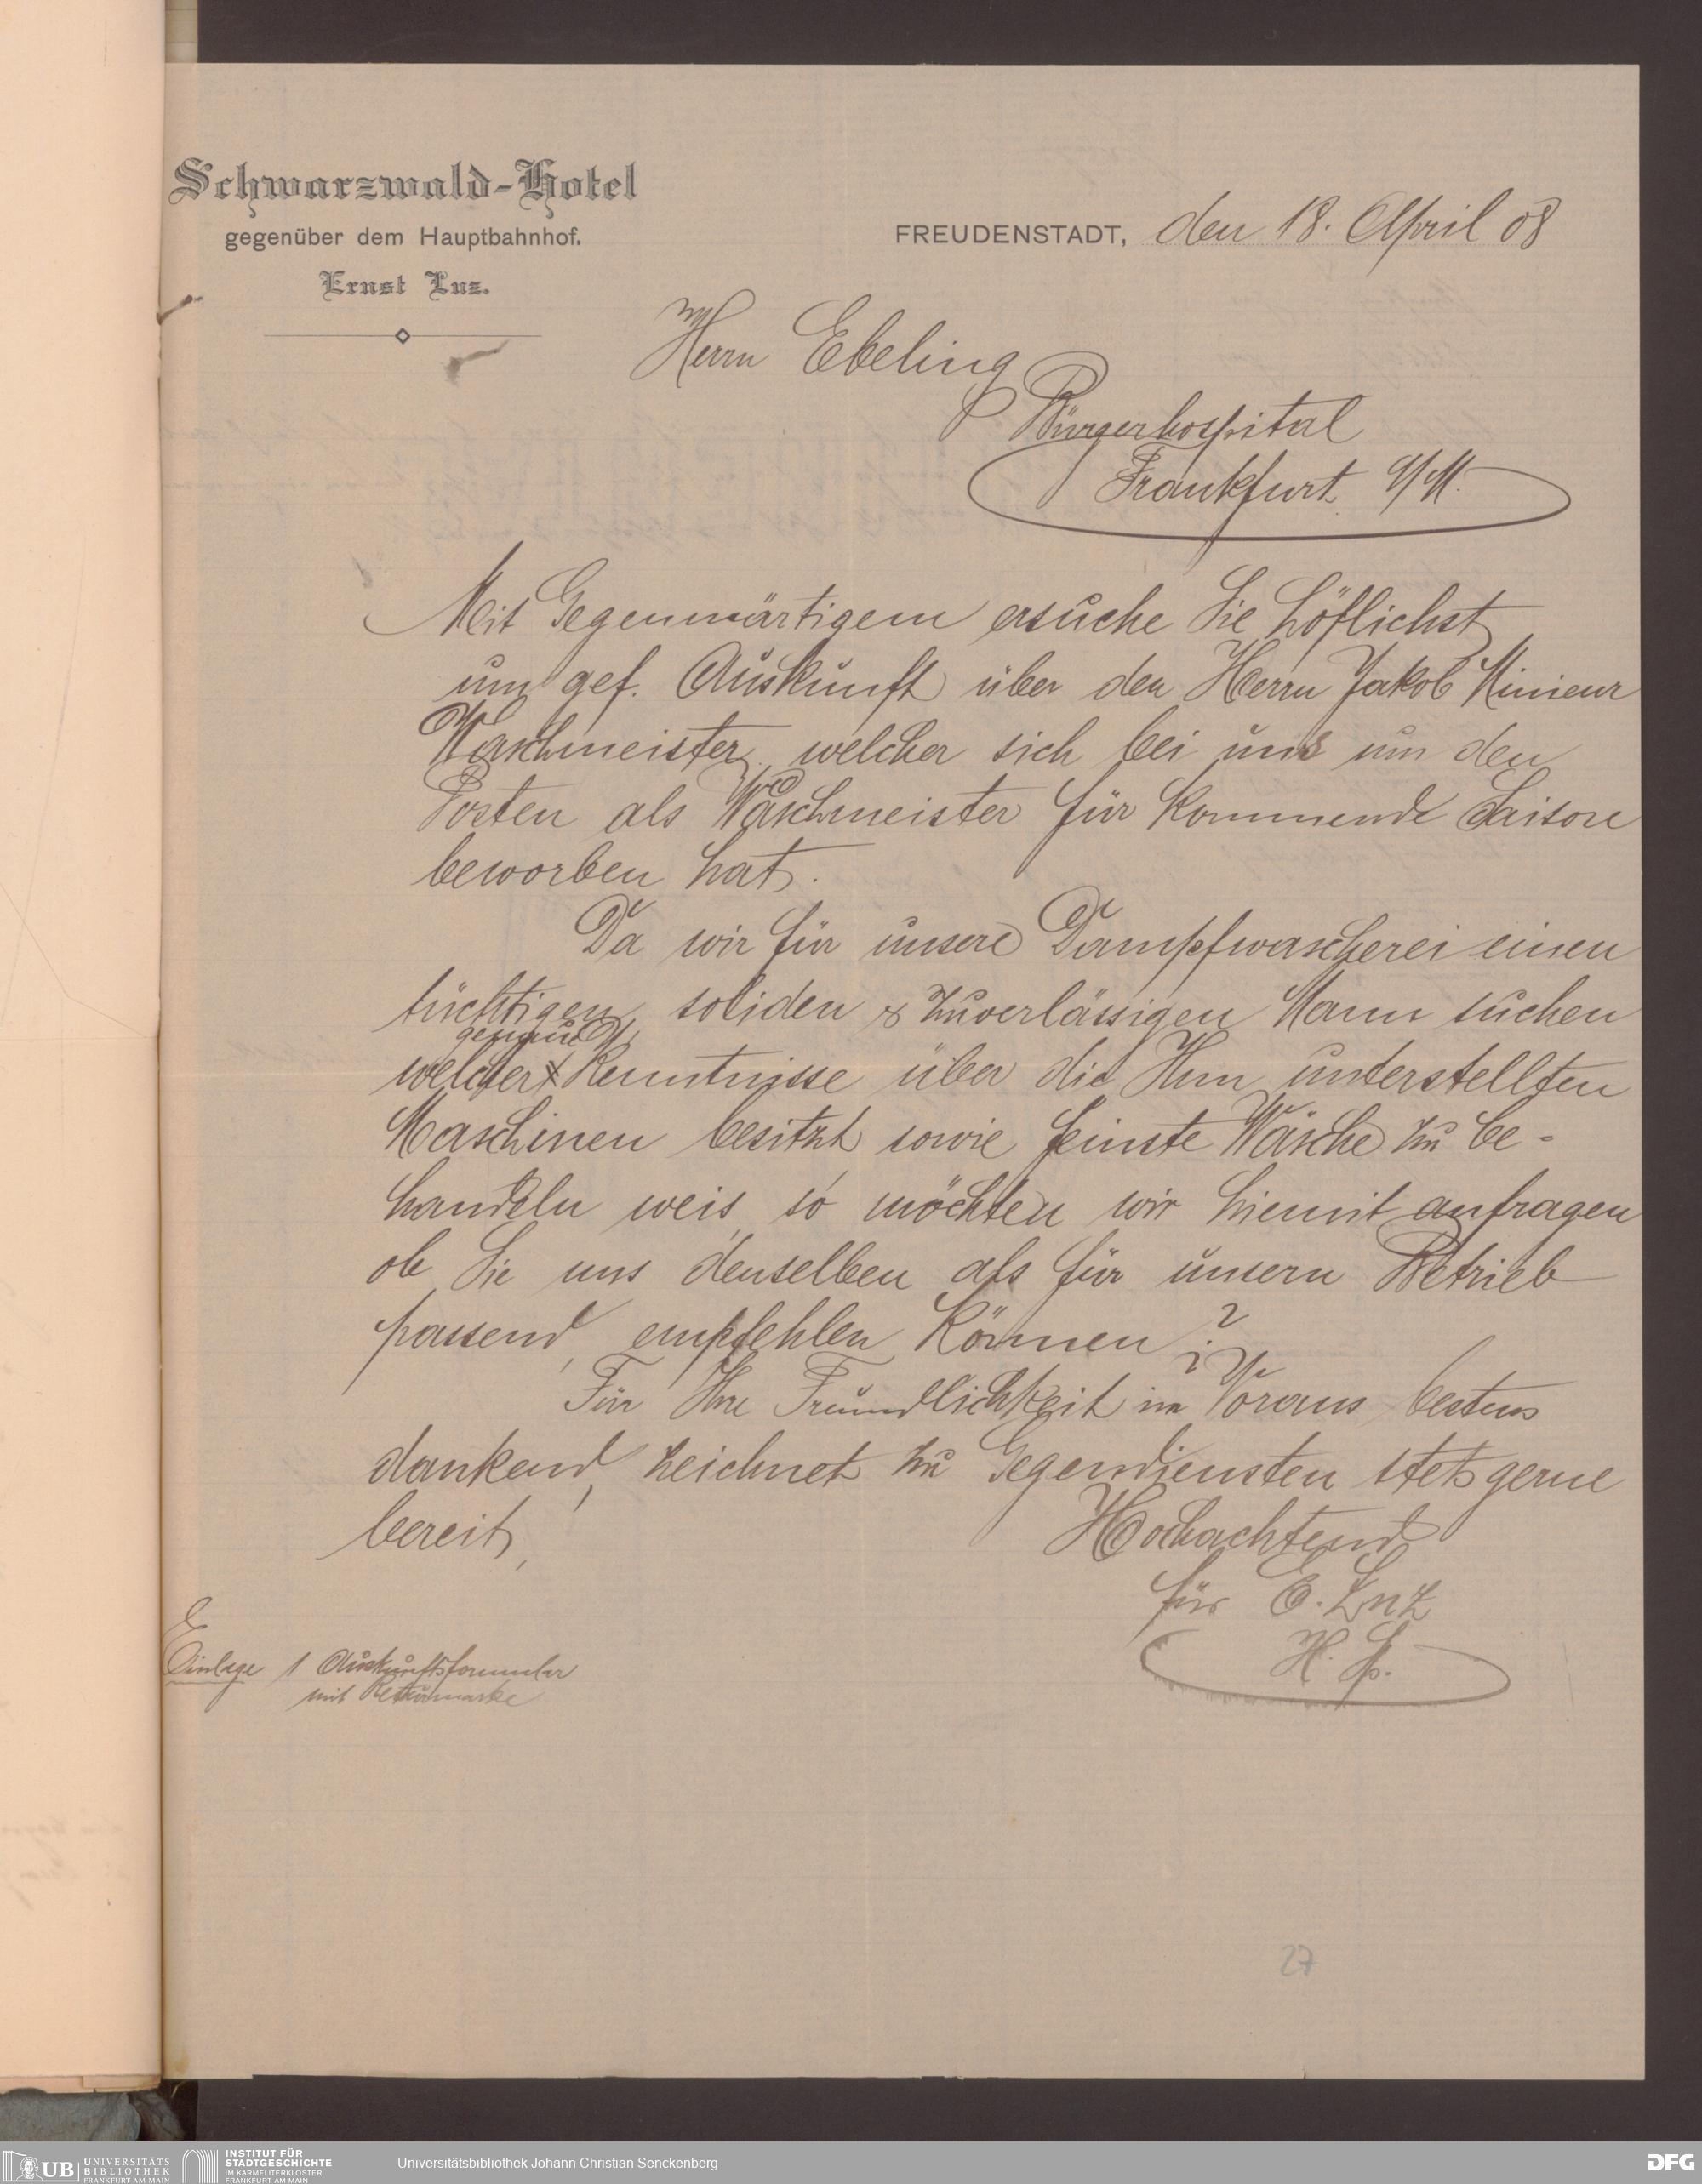 Schwarzwald-Hotel
gegenüber dem Hauptbahnhof.
Ernst Luz.
FREUDENSTADT, den 18. April 08
Herrn Ebeling
Bürgerhospital
Frankfurt a/M.
Mit Gegenwärtigem ersuche Sie höflichst
um gef. Auskunft über den Herrn Jakob
Waschmeister, welcher sich bei uns um den
Posten als Waschmeister für kommende Saison
beworben hat.
Da wir für unsere Dampfwascherei einen
tüchtigen, soliden & zuverlässigen Mann suchen
welcher Kenntnisse über die Ihm unterstellten
Maschinen besitzt sowie feinste Wäsche zu be-
handeln weis, so möchten wir hiemit anfragen
ob Sie uns denselben als für unsern Betrieb
passend, empfehlen können?
Für Ihre Freundlichkeit im Voraus bestens
dankend, zeichnet zu Gegendiensten stets gerne
bereit,
Hochachtend
für E. Luz
H. Sp.
Einlage 1 Auskunftsformular
mit Retourmarke
27
UB UNIVERSITÄTS
BIBLIOTHEK
FRANKFURT AM MAIN
INSTITUT FÜR
STADTGESCHICHTE
IM KARMELITERKLOSTER
FRANKFURT AM MAIN
Universitätsbibliothek Johann Christian Senckenberg
DFG